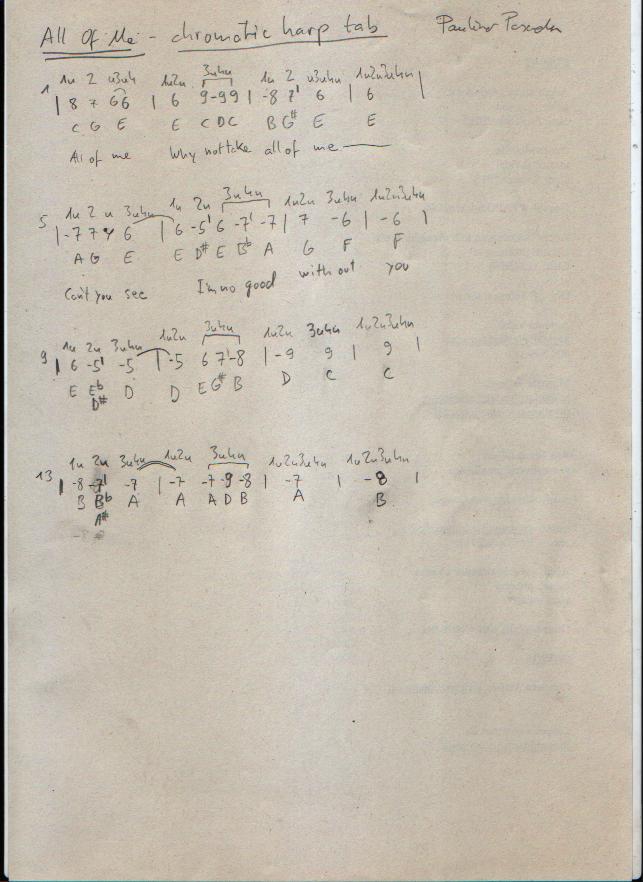 All Of Me - chromatic harp tab
1u 2 u3u4 1u2u 3u4u 1u 2 u3u4u 1u2u3u4u
1 | 8 7 66 | 6 9-99 | -8 7' 6 | 6 |
C G E E C D C B G# E E
All of me Why not take all of me
1u 2 u 3u4u 1u 2u 3u4u 1u2u 3u4u 1u2u3u4u
5 | -7 7 6 | 6 -5' 6 -7' -7 | 7 -6 | -6 |
A G E E D# E Bb A G F F
Can't you see I'm no good without you
1u 2u 3u4u 1u2u 3u4u 1u2u 3u4u 1u2u3u4u
9 | 6 -5' -5 | -5 6 7' -8 | -9 9 | 9 |
E Eb D D E G# B D C C
D#
1u 2u 3u4u 1u2u 3u4u 1u2u3u4u 1u2u3u4u
13 | -8 -7' -7 | -7 -7 -9 -8 | -7 | -8 |
B Bb A A A D B A B
A#